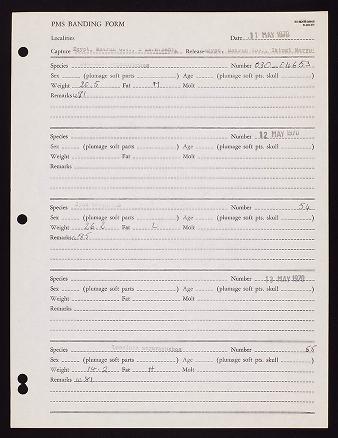 PMS BANDING FORM
Localities Date 11 MAY 1970
Capture Egypt, Release Egypt,
Species Number 030-04653
Sex (plumage soft parts ) Age (plumage soft pts. skull )
Weight 20.5 Fat M Molt
Remarks w81
Species Number 12 MAY 1970
Sex (plumage soft parts ) Age (plumage soft pts. skull )
Weight Fat Molt
Remarks
Species Number 54
Sex (plumage soft parts ) Age (plumage soft pts. skull )
Weight Fat L Molt
Remarks w85
Species Number 12 MAY 1970
Sex (plumage soft parts ) Age (plumage soft pts. skull )
Weight Fat Molt
Remarks
Species Number 55
Sex (plumage soft parts ) Age (plumage soft pts. skull )
Weight 14.2 Fat H Molt
Remarks w81